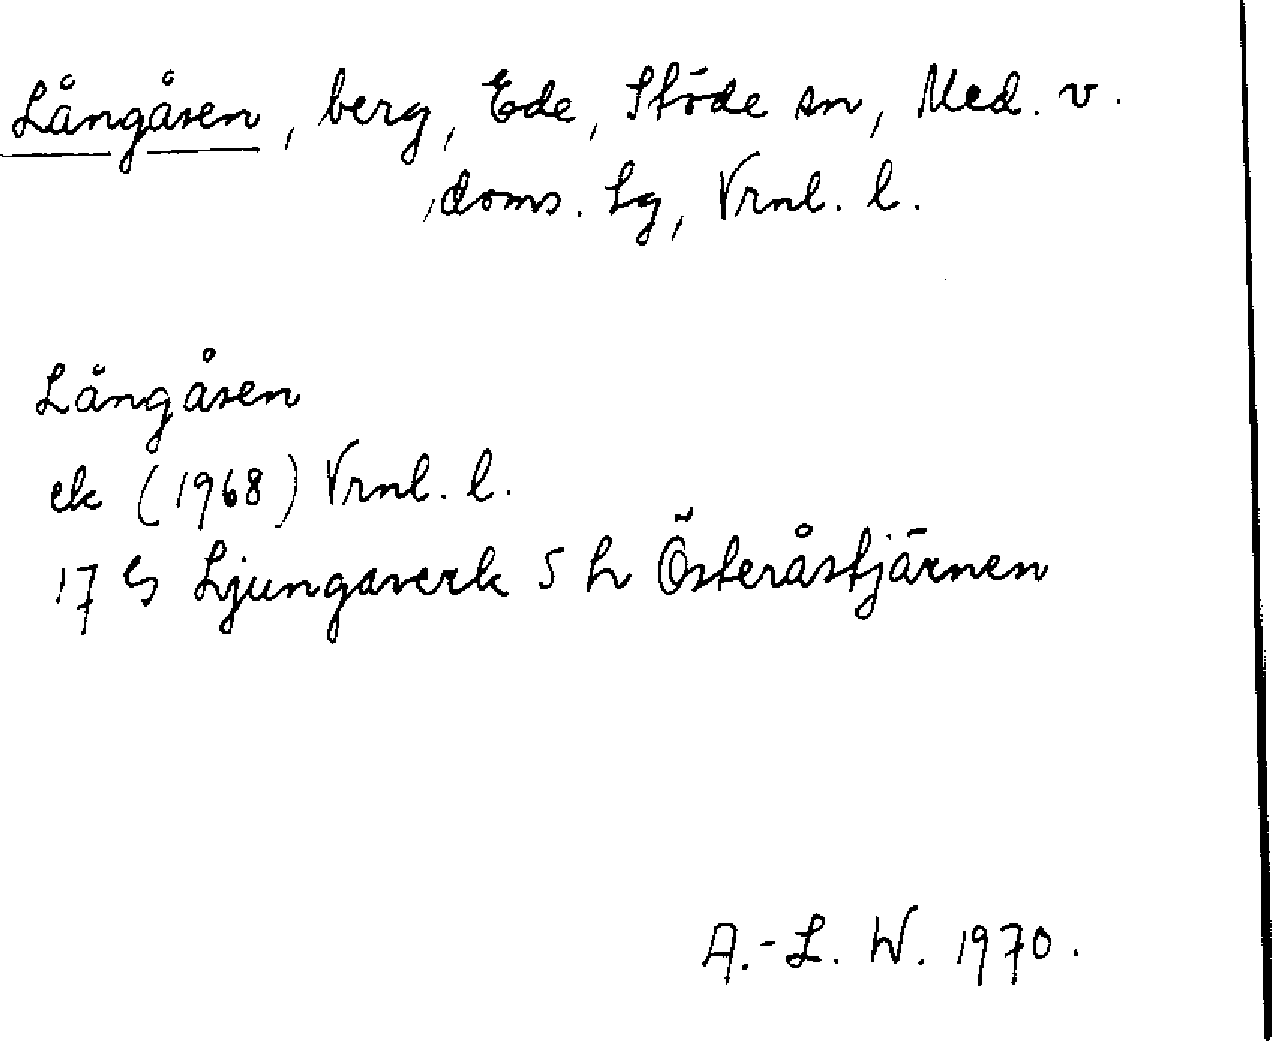 Långåsen, berg, Ede, Stöde sn, Med. v.
doms. Lg, Vrnl. l.
Långåsen
ek (1968) Vrnl. l.
17 G Ljungaverk 5 h Österåstjärnen
A.-L. W. 1970.